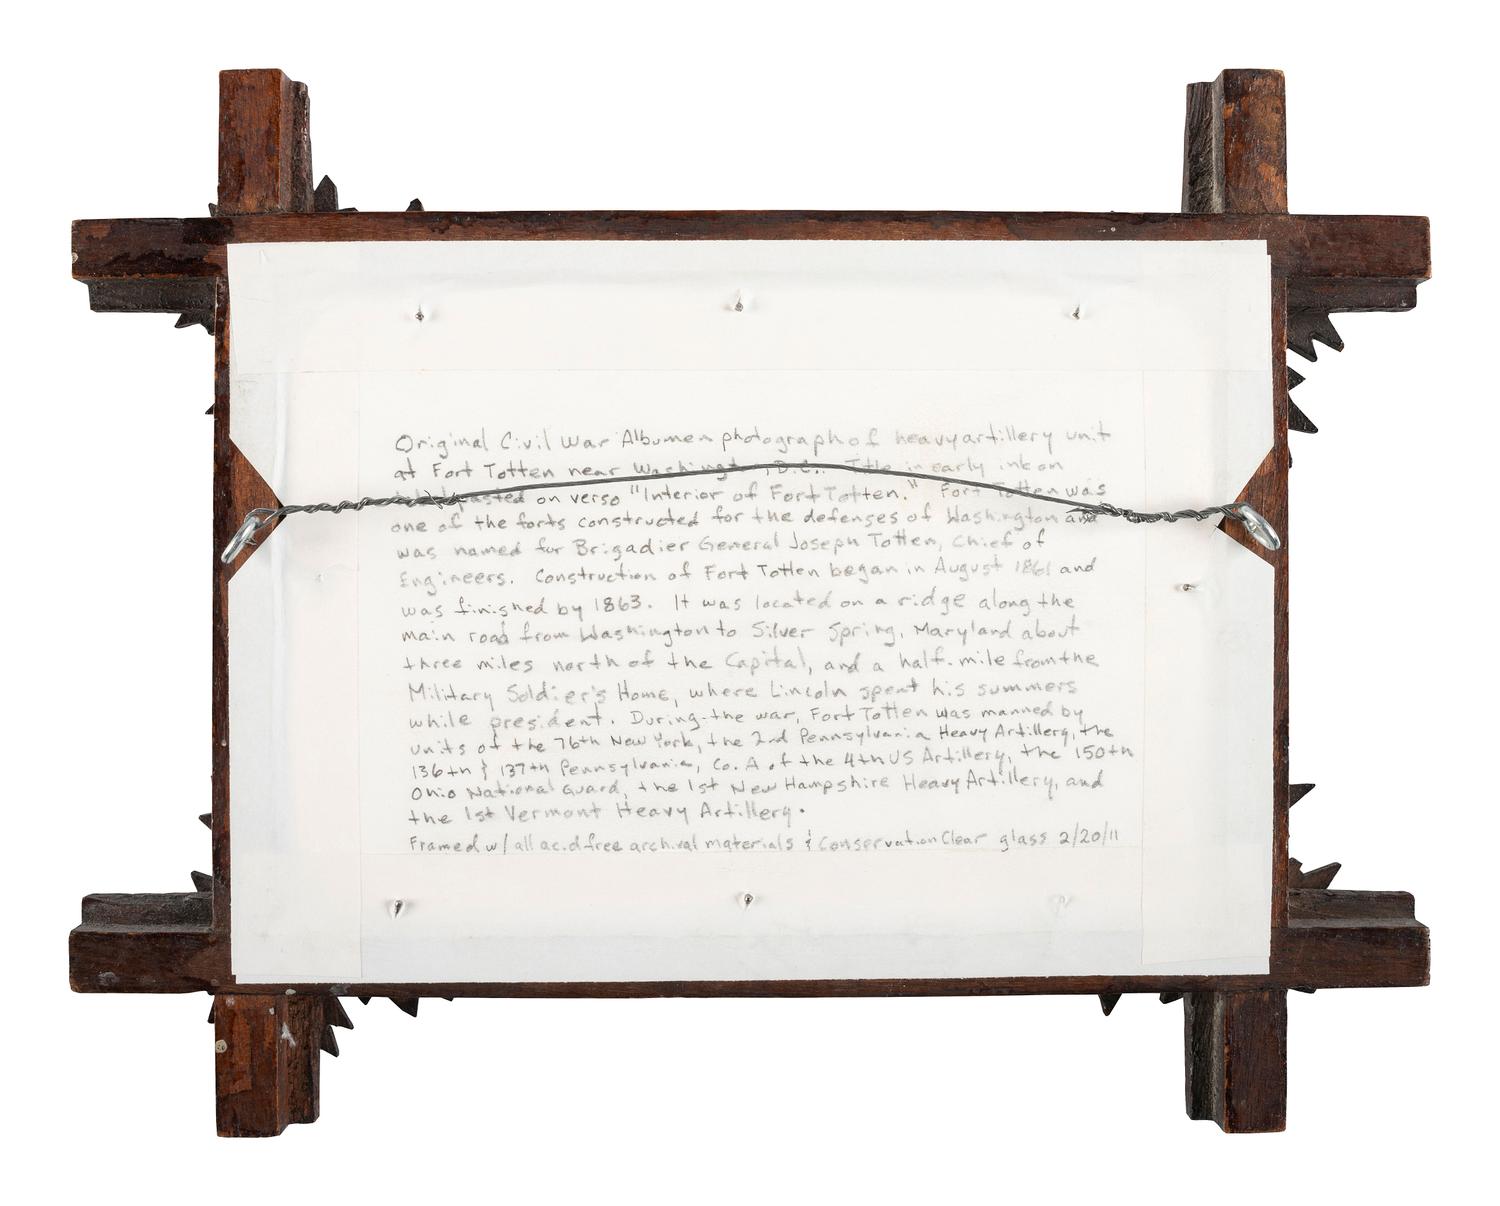 Original Civil War Albumen photograph of heavy artillery unit
at Fort Totten near Washington, D.C.. Title in early ink on
label pasted on verso "Interior of Fort Totten." Fort Totten was
one of the forts constructed for the defenses of Washington and
was named for Brigadier General Joseph Totten, Chief of
Engineers. Construction of Fort Totten began in August 1861 and
was finished by 1863. It was located on a ridge along the
main road from Washington to Silver Spring, Maryland about
three miles north of the Capital, and a half-mile from the
Military Soldier's Home, where Lincoln spent his summers
while president. During the war, Fort Totten was manned by
units of the 76th New York, the 2nd Pennsylvania Heavy Artillery, the
136th & 137th Pennsylvania, Co. A of the 4th US Artillery, the 150th
Ohio National Guard, the 1st New Hampshire Heavy Artillery, and
the 1st Vermont Heavy Artillery.
Framed w/ all acid free archival materials & Conservation Clear glass 2/20/11